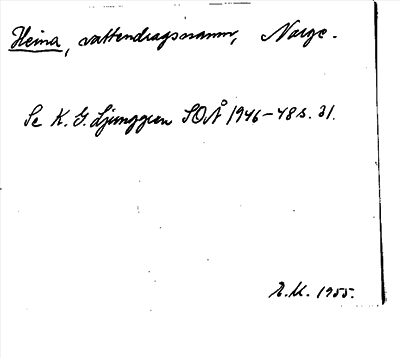 Heina, vattendragsnamn, Norge.
Se K. G. Ljunggren SOÅ 1946-48 s. 31.
R. M. 1955.